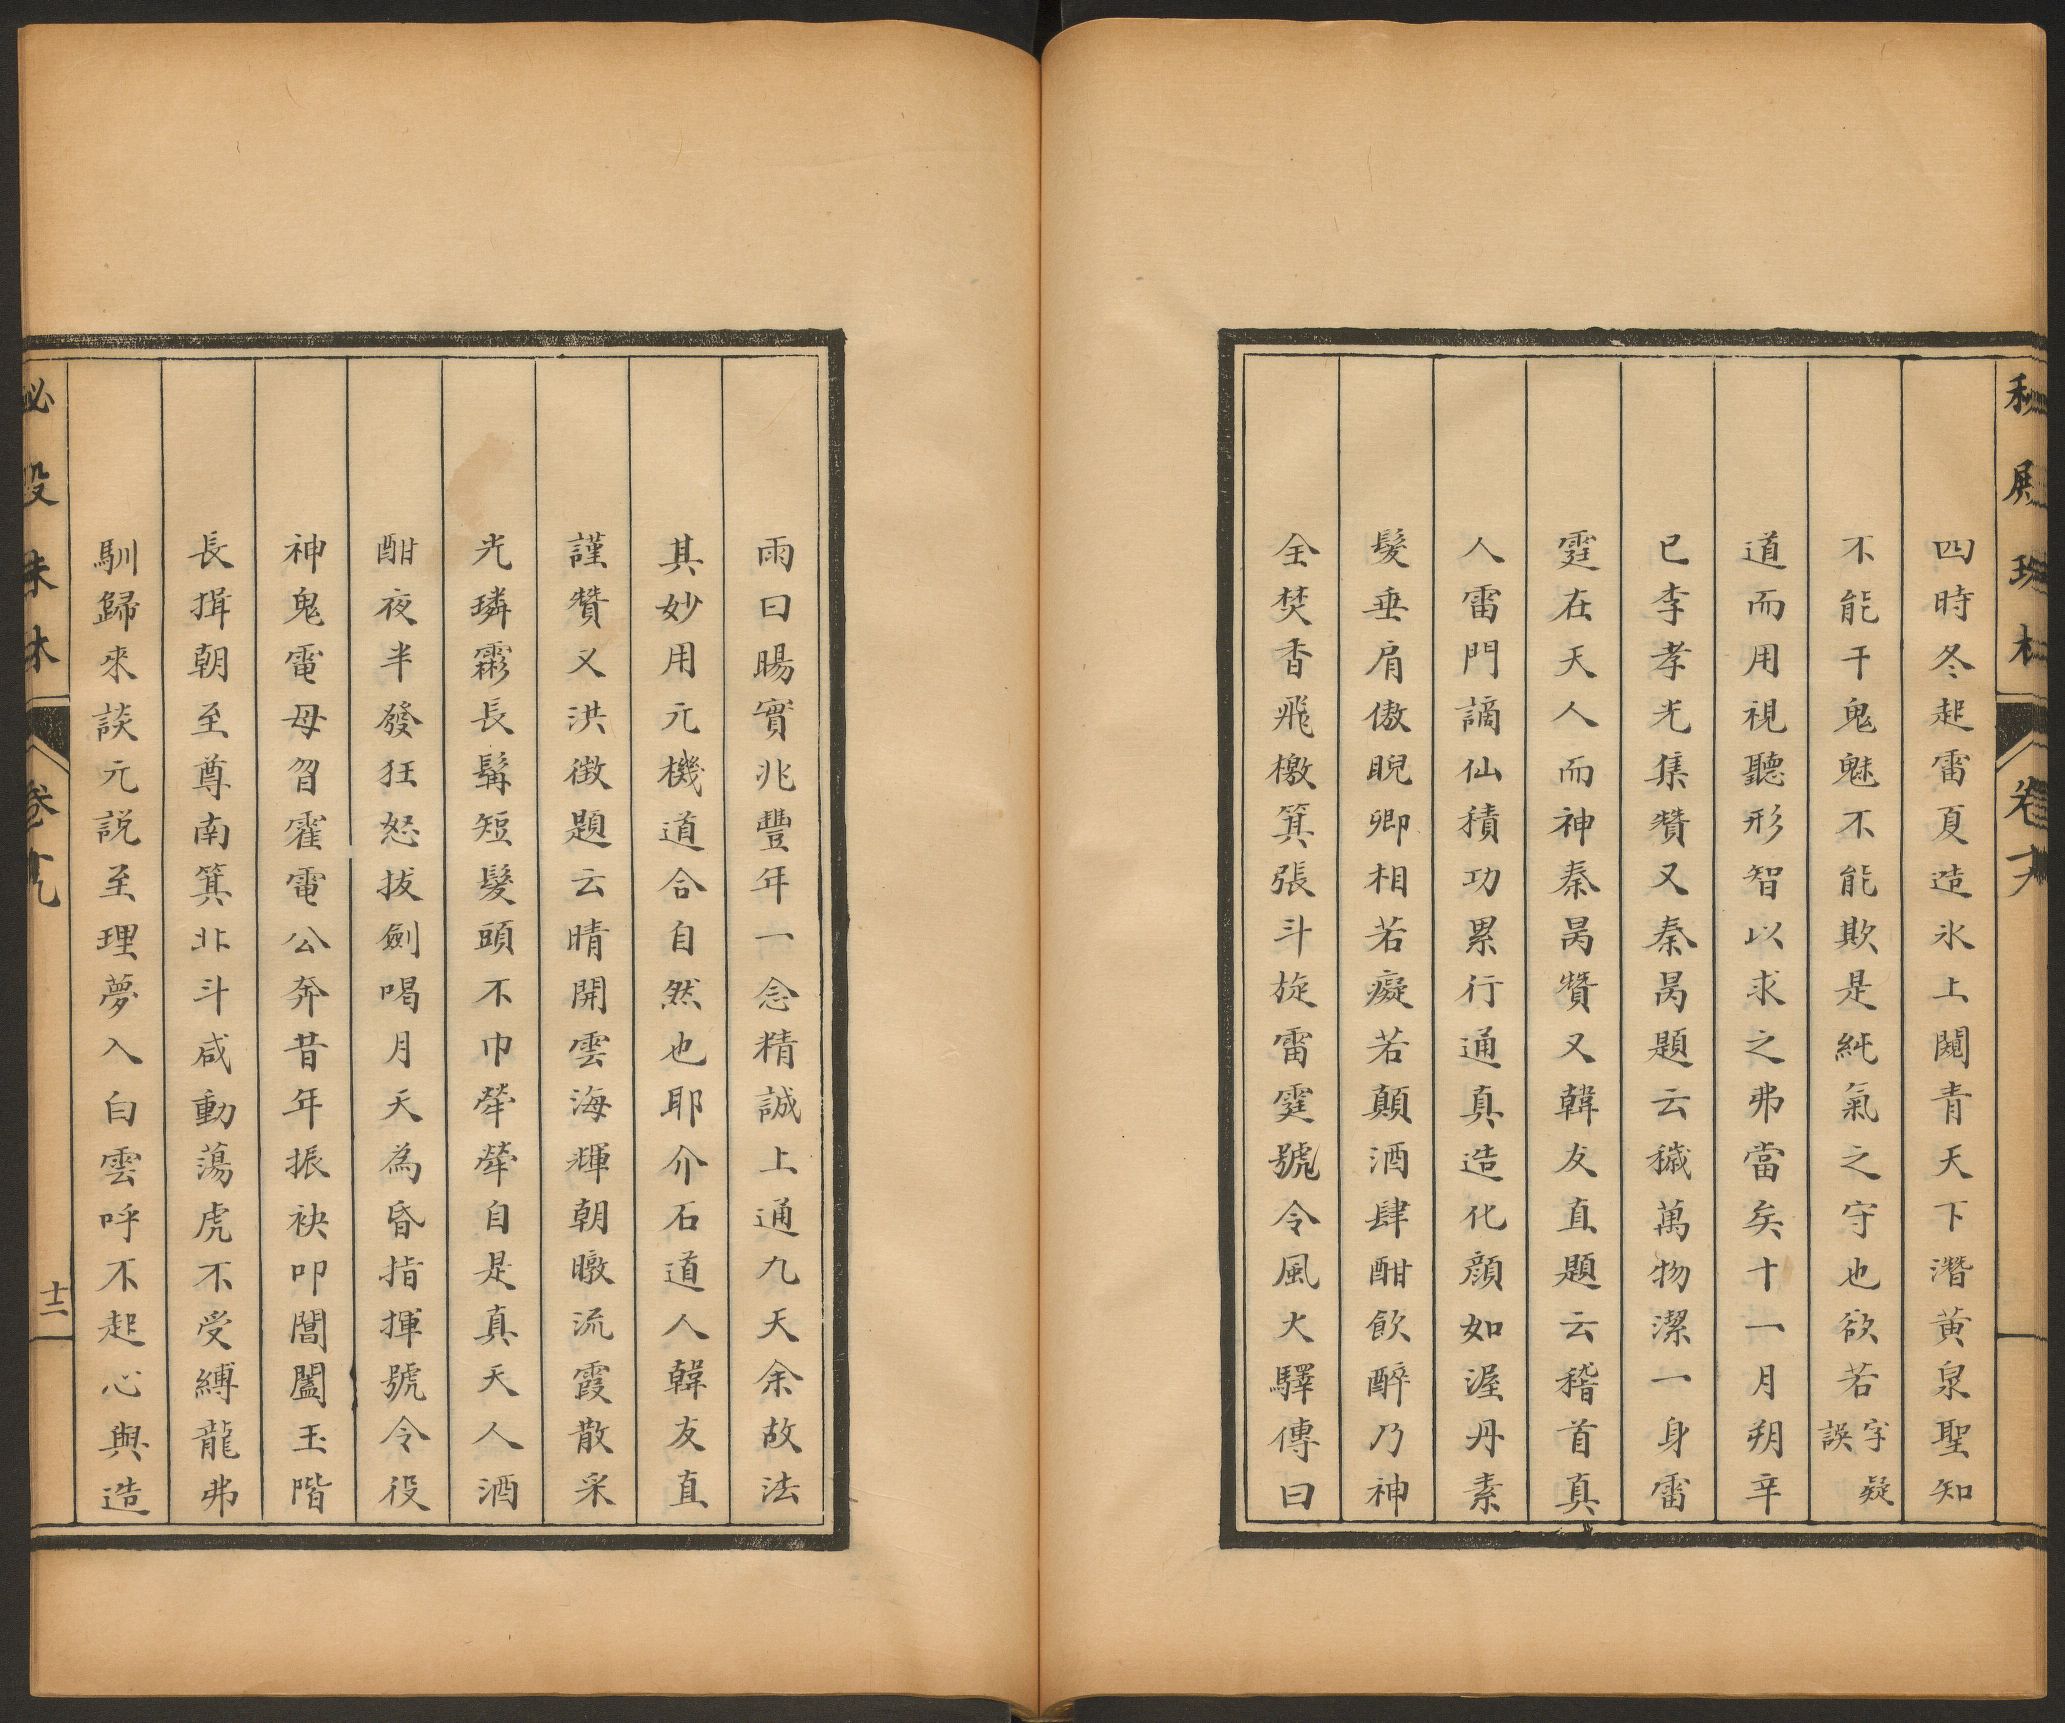 四時冬起雷夏造氷上闚青天下潛黄泉聖知
不能干鬼魅不能欺是純氣之守也欲若字疑誤
道而用視聽形智以求之弗當矣十一月朔辛
已李孝光集贊又秦昺題云穢萬物潔一身雷
霆在天人而神秦昺贊又韓友直題云稽首真
人雷門謫仙積功累行通真造化顔如渥丹素
髮垂肩傲睨卿相若癡若顛酒肆酣飲醉乃神
全焚香飛檄箕張斗旋雷霆號令風火驛傳曰
雨曰暘實兆豐年一念精誠上通九天余故法
其妙用元機道合自然也耶介石道人韓友直
謹贊又洪徴題云晴開雲海輝朝暾流霞散采
光璘霦長髯短髮頭不巾犖犖自是真天人酒
酣夜半發狂怒拔劍喝月天為昏指揮號令役
神鬼電母睂霍電公奔昔年振袂叩閶闔玉階
長揖朝至尊南箕北斗咸動蕩虎不受縛龍弗
馴歸來談元説至理夢入白雲呼不起心與造
秘殿珠林
卷十九
十二